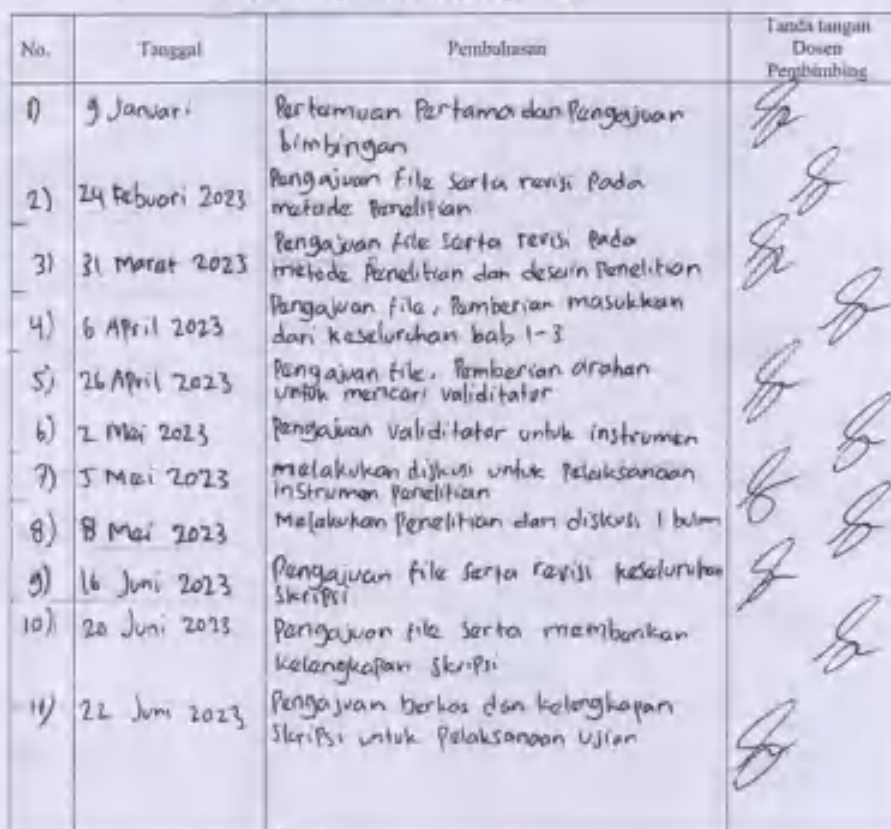 No. Tanggal Pembahasan Tanda tangan
Dosen
Pembimbing
1) 9 Januari Pertemuan Pertama dan Pengajuan
bimbingan
2) 24 Febuari 2023 Pengajuan file serta revisi Pada
metode Penelitian
3) 31 Maret 2023 Pengajuan file serta revisi Pada
metode Penelitian dan desain Penelitian
4) 6 April 2023 Pengajuan file, Pemberian masukkan
dari keseluruhan bab 1-3
5) 26 April 2023 Pengajuan file, Pemberian arahan
untuk mencari validitator
6) 2 Mei 2023 Pengajuan validitator untuk instrumen
7) 5 Mei 2023 melakukan diskusi untuk Pelaksanaan
instrumen Penelitian
8) 8 Mei 2023 Melakukan Penelitian dan diskusi 1 bulan
9) 16 Juni 2023 Pengajuan file serta revisi keseluruhan
Skripsi
10) 20 Juni 2023 Pengajuan file serta memberikan
kelengkapan Skripsi
11) 22 Juni 2023 Pengajuan berkas dan kelengkapan
Skripsi untuk Pelaksanaan Ujian